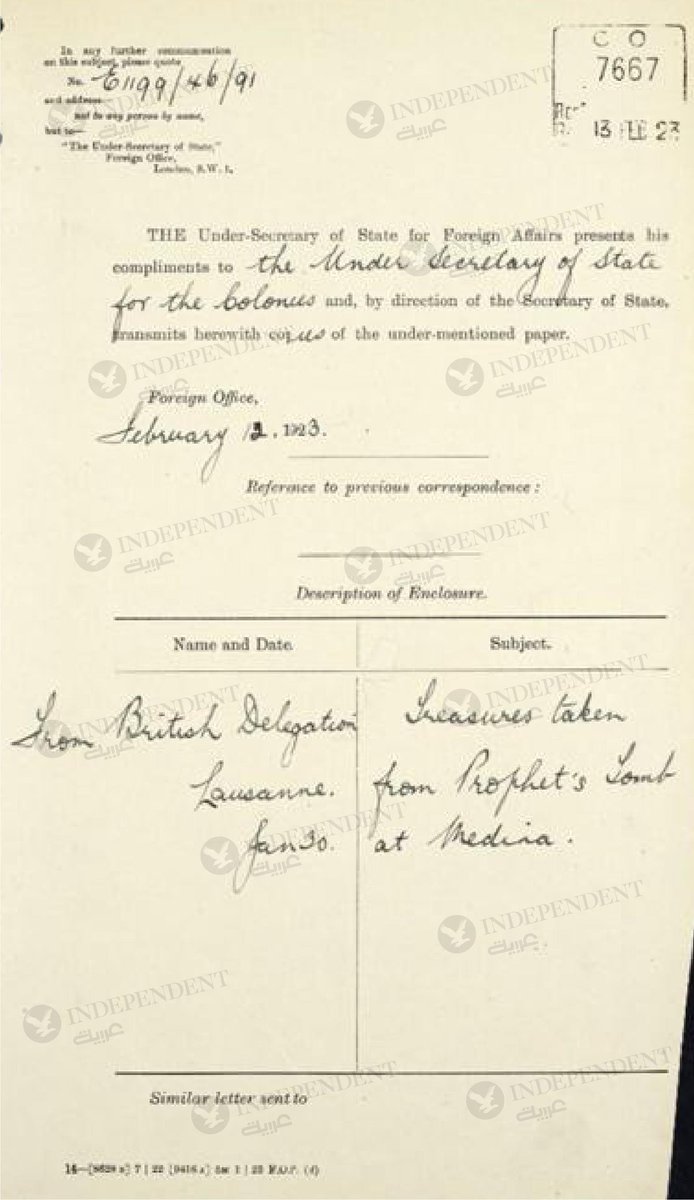 In any further communication
on this subject, please quote
No. E1199/46/91
and address
not to any person by name,
but to—
"The Under-Secretary of State,"
Foreign Office,
London, S.W. 1.
C O
7667
13 FEB 23
THE Under-Secretary of State for Foreign Affairs presents his
compliments to the Under Secretary of State
for the Colonies and, by direction of the Secretary of State,
transmits herewith copies of the under-mentioned paper.
Foreign Office,
February 12, 1923.
Reference to previous correspondence:
Description of Enclosure.
Name and Date.
Subject.
From British Delegation
Lausanne.
Jan 30.
Treasures taken
from Prophet's Tomb
at Medina.
Similar letter sent to
INDEPENDENT
عربية
INDEPENDENT
عربية
INDEPENDENT
عربية
INDEPENDENT
عربية
INDEPENDENT
عربية
INDEPENDENT
عربية
INDEPENDENT
عربية
INDEPENDENT
عربية
INDEPENDENT
عربية
INDEPENDENT
عربية
INDEPENDENT
عربية
INDEPENDENT
عربية
INDEPENDENT
عربية
INDEPENDENT
عربية